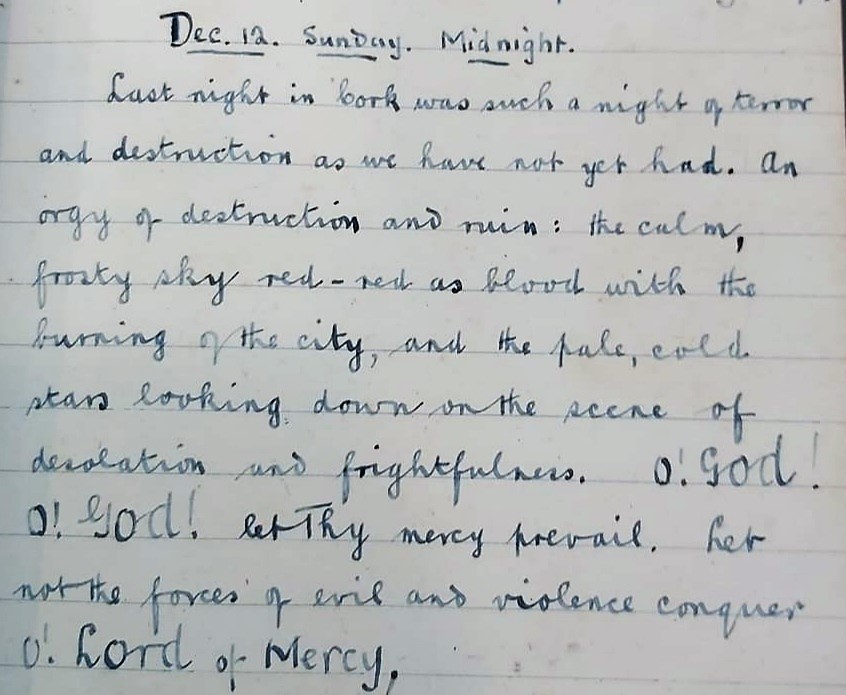 Dec. 12. Sunday. Midnight.
Last night in Cork was such a night of terror
and destruction as we have not yet had. An
orgy of destruction and ruin: the calm,
frosty sky red-red as blood with the
burning of the city, and the pale, cold
stars looking down on the scene of
desolation and frightfulness. O! God!
O! God! let Thy mercy prevail. Let
not the forces of evil and violence conquer
O! Lord of Mercy.